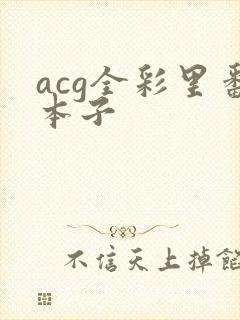 acg全彩里番
本子
不信天上掉馅